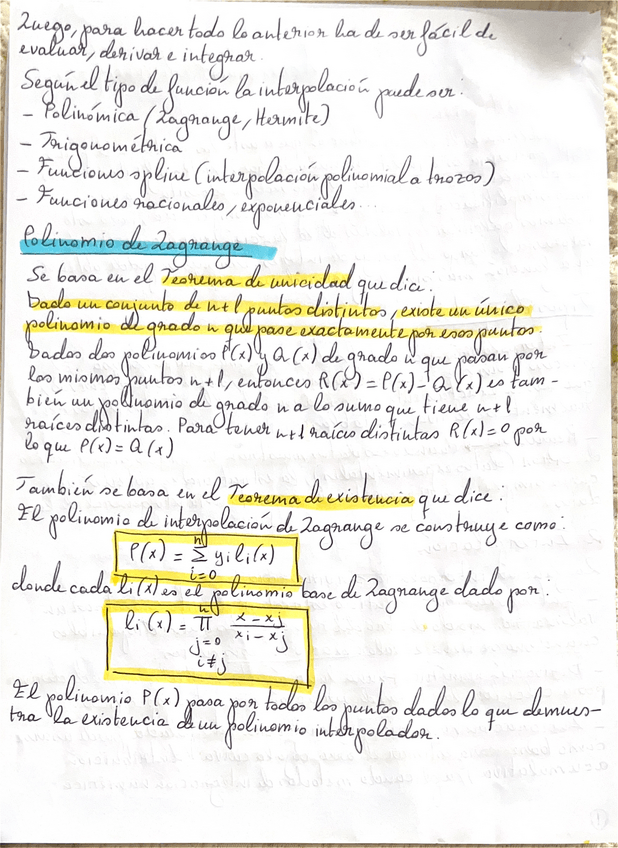 Luego, para hacer todo lo anterior ha de ser fácil de
evaluar, derivar e integrar.
Según el tipo de función la interpolación puede ser:
- Polinómica (Lagrange, Hermite)
- Trigonométrica
- Funciones spline (interpolación polinomial a trozos)
- Funciones racionales, exponenciales...
Polinomio de Lagrange
Se basa en el Teorema de unicidad que dice:
Dado un conjunto de n+1 puntos distintos, existe un único
polinomio de grado n que pase exactamente por esos puntos.
Dados dos polinomios P(x) y Q(x) de grado n que pasan por
los mismos puntos n+1, entonces R(x) = P(x) - Q(x) es tam-
bién un polinomio de grado n a lo sumo que tiene n+1
raíces distintas. Para tener n+1 raíces distintas R(x)=0 por
lo que P(x) = Q(x)
También se basa en el Teorema de existencia que dice:
El polinomio de interpolación de Lagrange se construye como:
P(x) = ∑ⁿᵢ₌₀ yᵢ lᵢ(x)
donde cada lᵢ(x) es el polinomio base de Lagrange dado por:
lᵢ(x) = ∏ⁿ (x - xⱼ)/(xᵢ - xⱼ)
j=0
i≠j
El polinomio P(x) pasa por todos los puntos dados lo que demues-
tra la existencia de un polinomio interpolador.